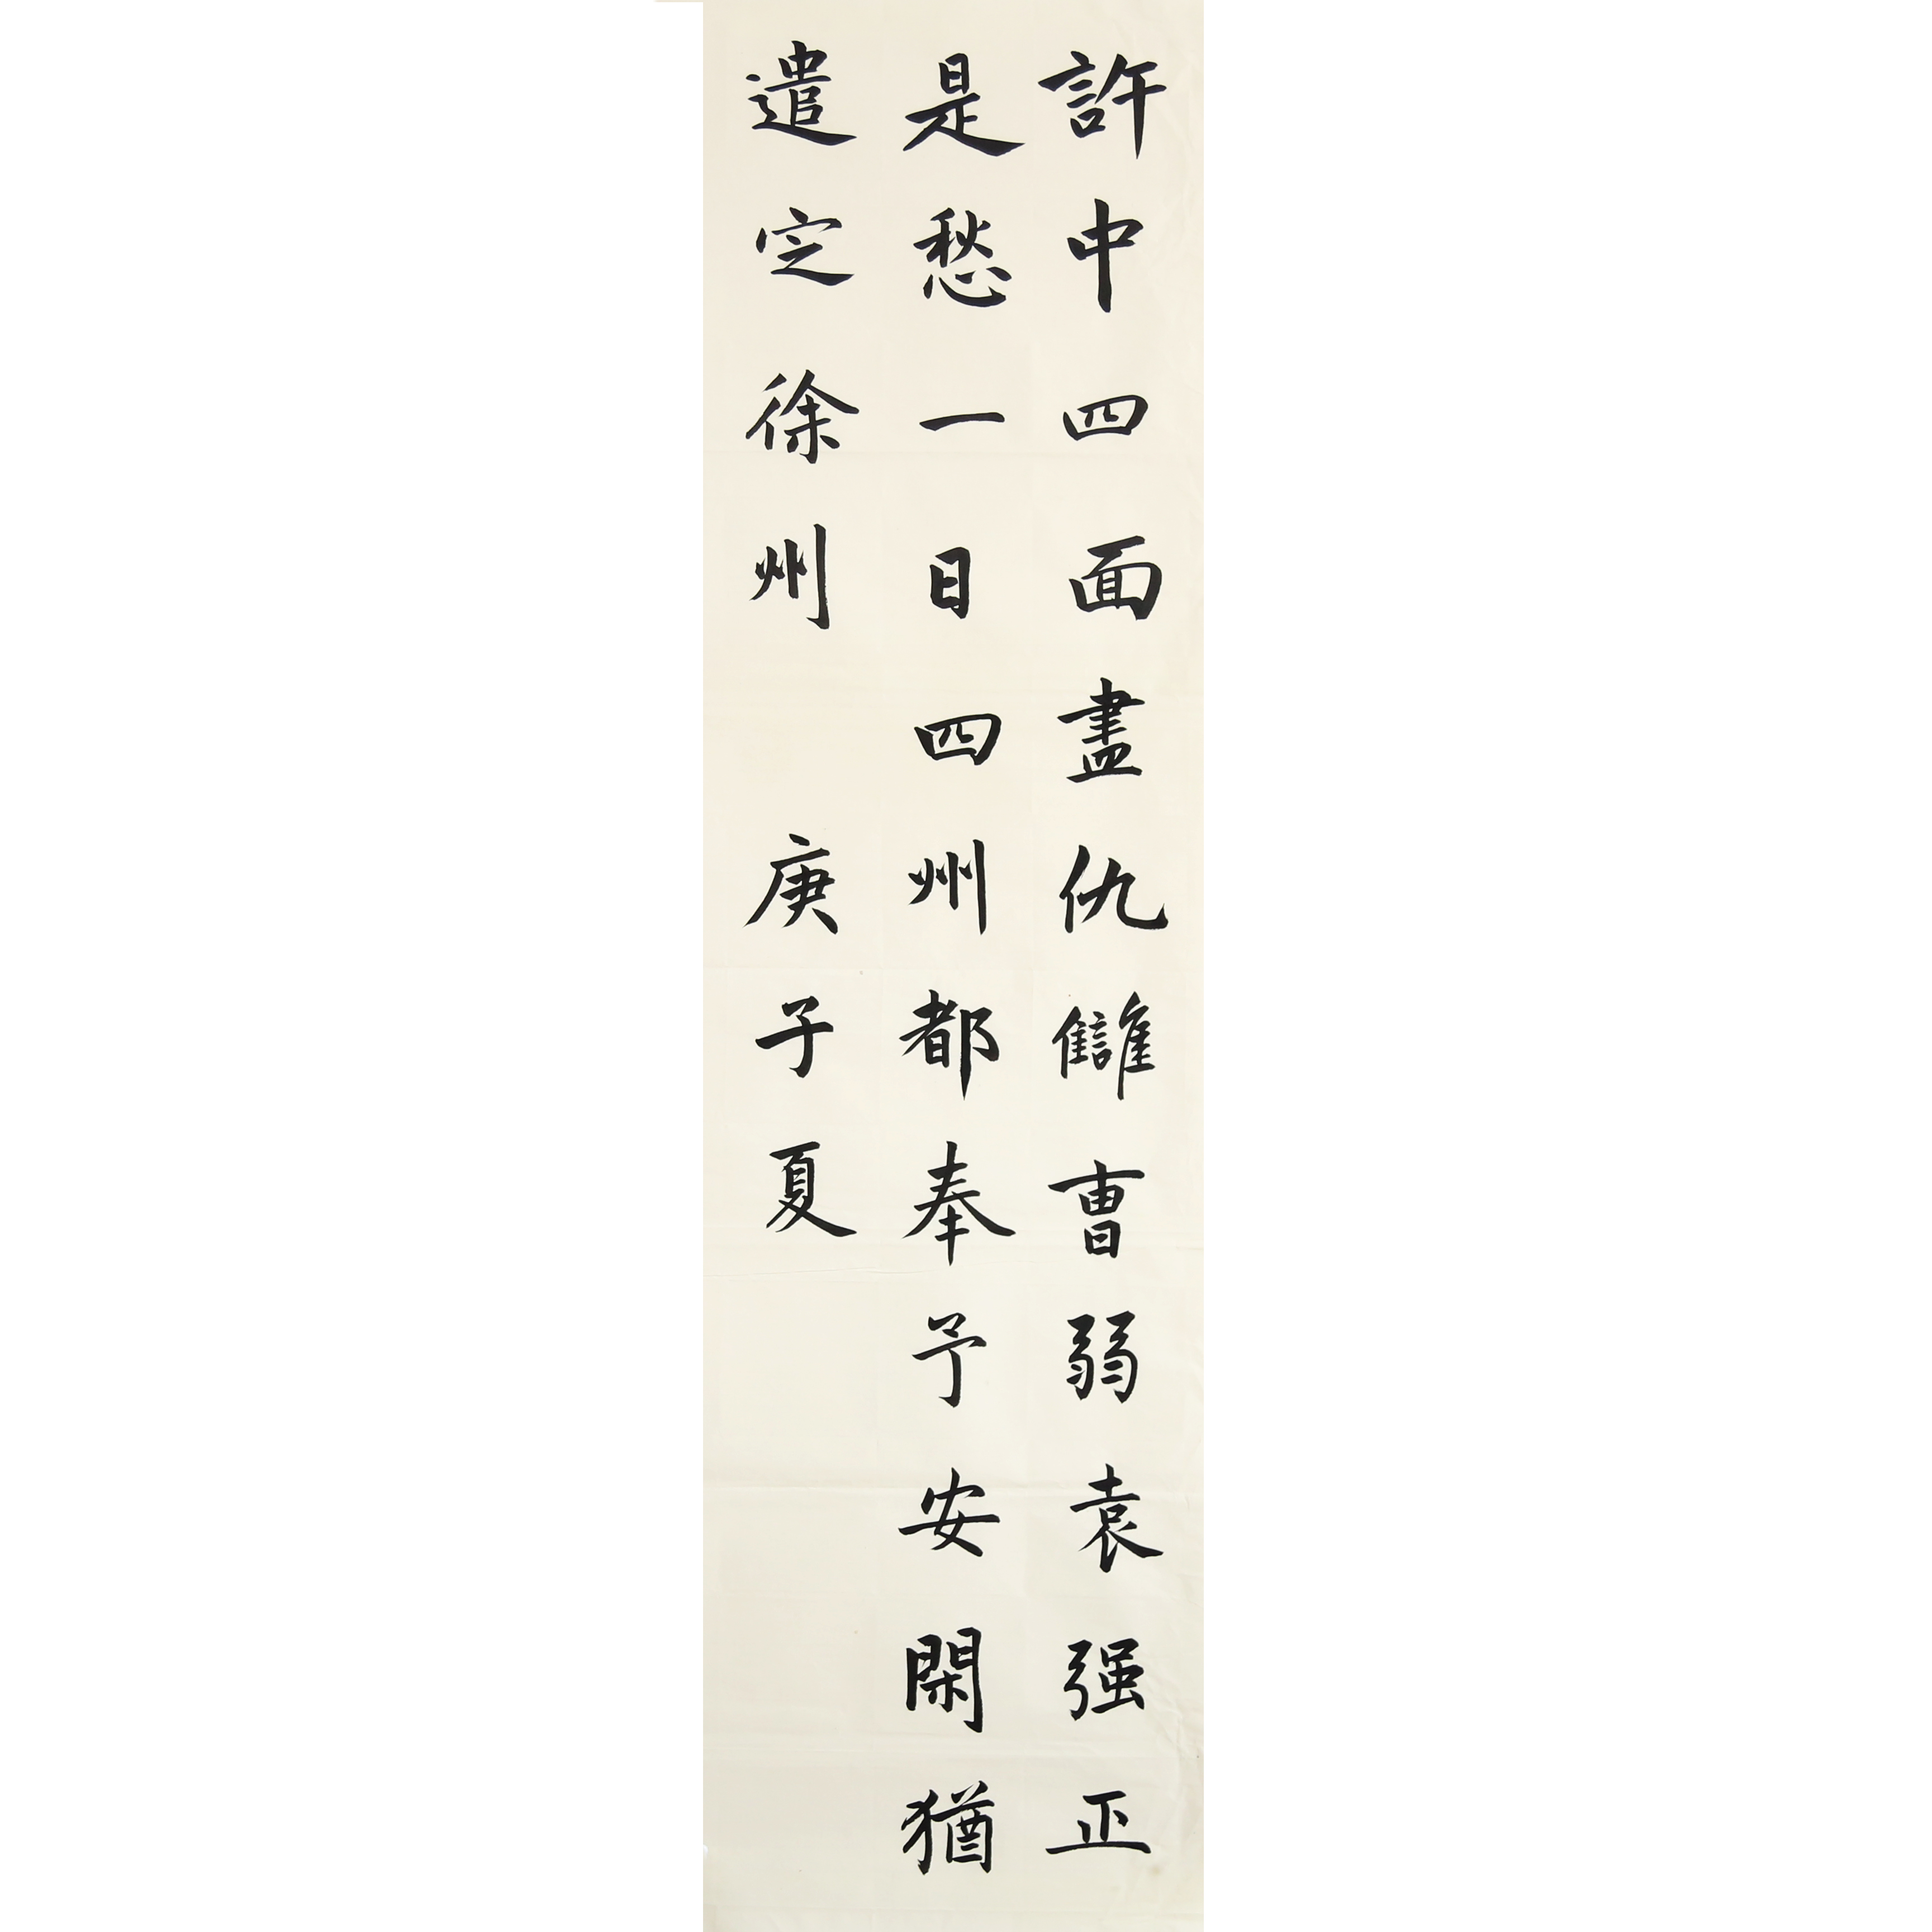 許中四面盡仇讎曹弱袁强正
是愁一日四州都奉予安閑猶
遣定徐州 庚子夏